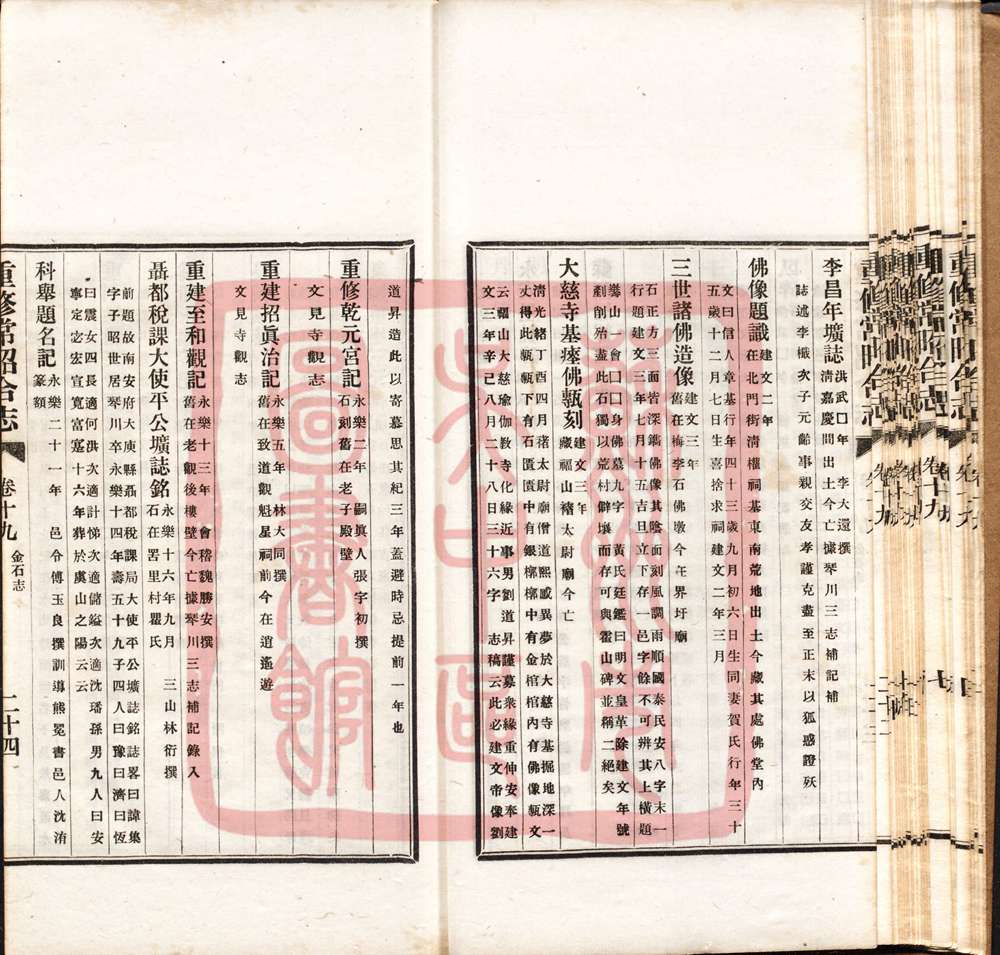 李昌年壙誌洪武□年 李大還撰
清嘉慶間出土今亡據琴川三志補記補
誌述李樴次子元齡事親交友孝謹克盡至正末以狐惑證歿
佛像題識建文二年
在北門街清權祠基東南荒地出土今藏其處佛堂內
文曰信人章基行年四十三歲九月初六日生同妻賀氏行年三十
五歲十二月七日生喜捨求祠建文二年三月
三世諸佛造像建文三年
舊在梅李石佛墩今在界圩廟
石正方三面皆深鐫佛像其陰面刻風調雨順國泰民安八字末一
行題建文三年七月十五吉旦立下存一邑字餘不可辨其上橫題
嶹山一會囗囗身佛墓九字黃氏廷鑑曰明文皇革除建文年號
剷削殆盡此石獨以荒村僻壤而存可與霍山碑並稱二絕矣
大慈寺基瘞佛甎刻建文三年
藏福山褚太尉廟今亡
淸光緒丁酉四月褚太尉廟僧道熙感異夢於大慈寺基掘地深一
丈得此甎甎下有石匱匱中有銀槨槨中有金棺棺內有佛像甎文
云福山大慈瑜伽教寺化緣近事男劉道昇謹募衆緣重伸安奉建
文三年辛己八月二十八日三十六字 志稿云此必建文帝像劉
道昇造此以寄慕思其紀三年蓋避時忌提前一年也
重修乾元宮記永樂二年 嗣眞人張字初撰
石刻舊在老子殿壁
文見寺觀志
重建招眞治記永樂五年 林大同撰
舊在致道觀魁星祠前今在逍遙遊
文見寺觀志
重建至和觀記永樂十三年 會稽魏勝安撰
舊在老觀後樓壁今亡據琴川三志補記錄入
聶都稅課大使平公壙誌銘永樂十六年九月 三山林衍撰
石在罟里村瞿氏
前題故南安府大庾縣聶都稅課局大使平公壙誌銘誌畧曰諱集
字子昭世居琴川卒永樂十四年壽五十九子四人曰豫曰濟曰恆
曰震女四長適何洪次適計悌次適儲鎰次適沈璠孫男九人曰安
寧定宓宏宣寬富寔十六年葬於虞山之陽云云
科舉題名記永樂二十一年 邑令傅玉良撰訓導熊冕書邑人沈洧
篆額
重修常昭合志 卷十九 金石志 二十四